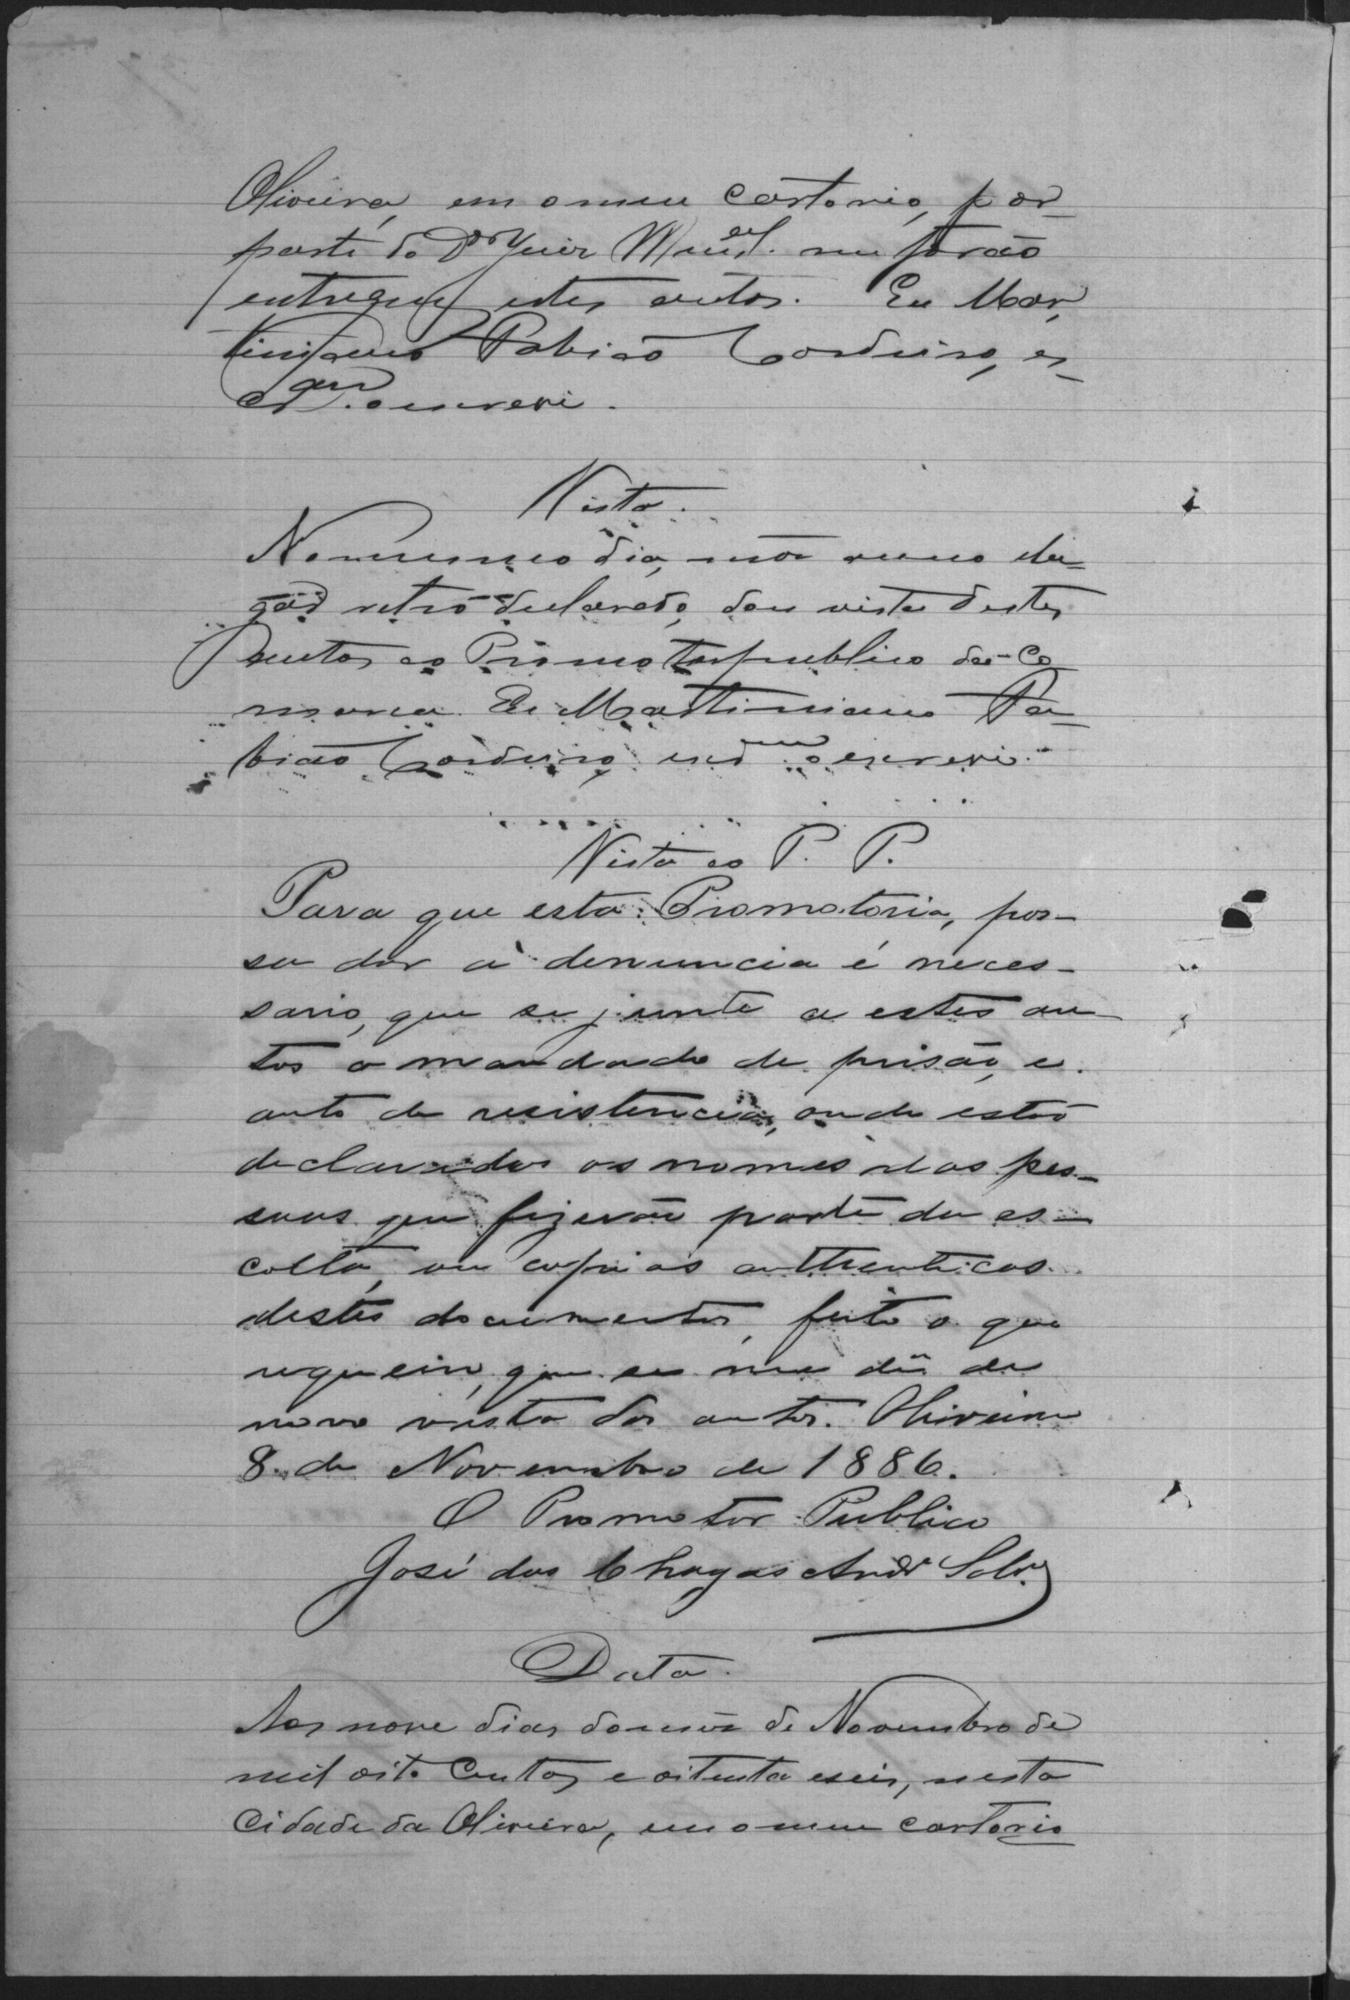 Oliveira, em o meu cartorio, por
parte do Dor Juiz Mun.al me forão
entregues estes autos. Eu Mar,
tiniano Fabião Cordeiro, es-
am o escrevi.
Vista.
No mesmo dia, mês anno e lu-
gar retrò declarado, dou vista destes
autos ao Promotor publico da Co
marca. Eu Martiniano Fa-
bião Cordeiro, o escrevi.
Vista ao P. P.
Para que esta Promotoria, pos-
sa dar a denuncia é neces-
sario, que se junte a estes au-
tos o mandado de prisão, e
auto de resistencia, onde estão
declarados os nomes das pes-
soas que fizerão parte da es-
colta, ou copias authenticas
destes documentos, feito o que
requeiro, que se me dê de
novo vista dos autos. Oliveira
8 de Novembro de 1886.
O Promotor Publico
José das Chagas Andr.
Data.
Aos nove dias do mês de Novembro de
mil oito Centos e oitenta e seis, nesta
Cidade da Oliveira, em o meu cartorio